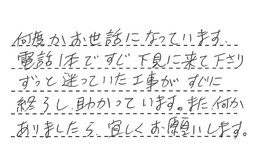 何度かお世話になっています。
電話1本ですぐ下見に来て下さり
ずっと迷っていた工事がすぐに
終了し、助かっています。また何か
ありましたら、宜しくお願いします。